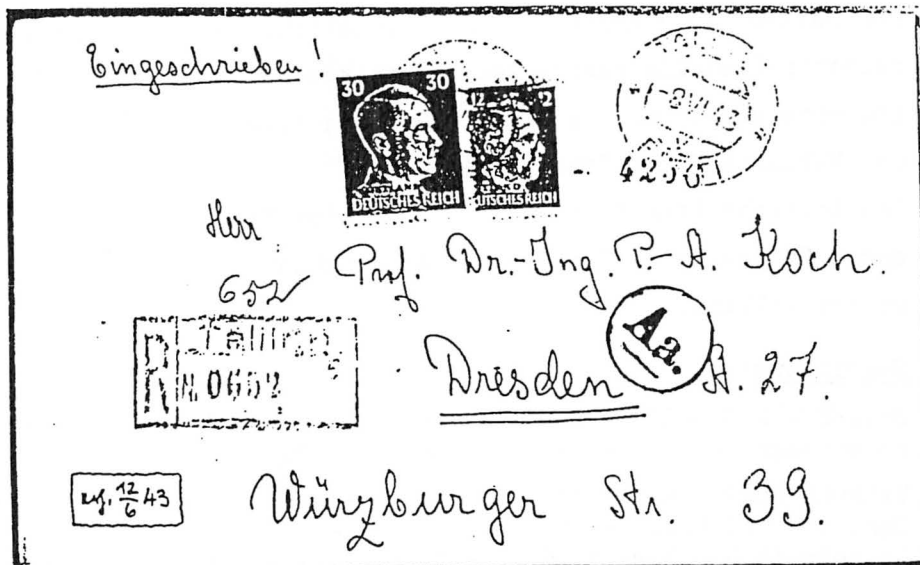 Eingeschrieben!
30 30
DEUTSCHES REICH
12
DEUTSCHES REICH
-8.VI.43
Herr
Prof. Dr.-Ing. P.-A. Koch.
652
R Tallinn
No 652
Aa.
Dresden A. 27.
12/6 43
Würzburger Str. 39.